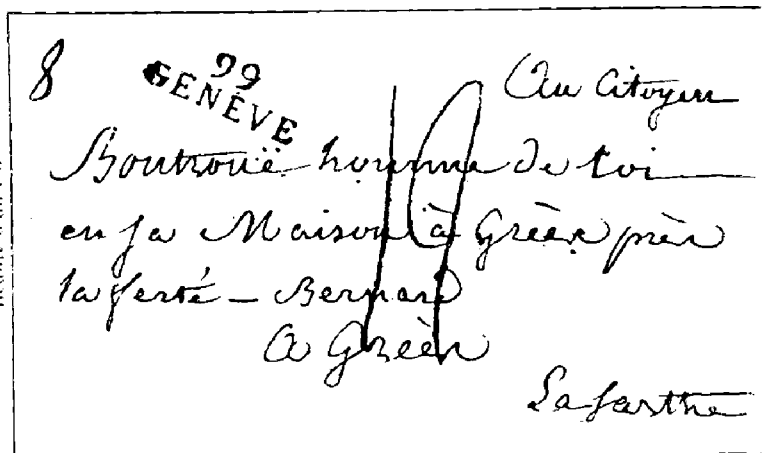 8
99
GENÈVE
Au Citoyen
Boutrouë homme de loi
en sa Maison à Gréèz près
la ferté - Bernard
a Gréèz
La sarthe